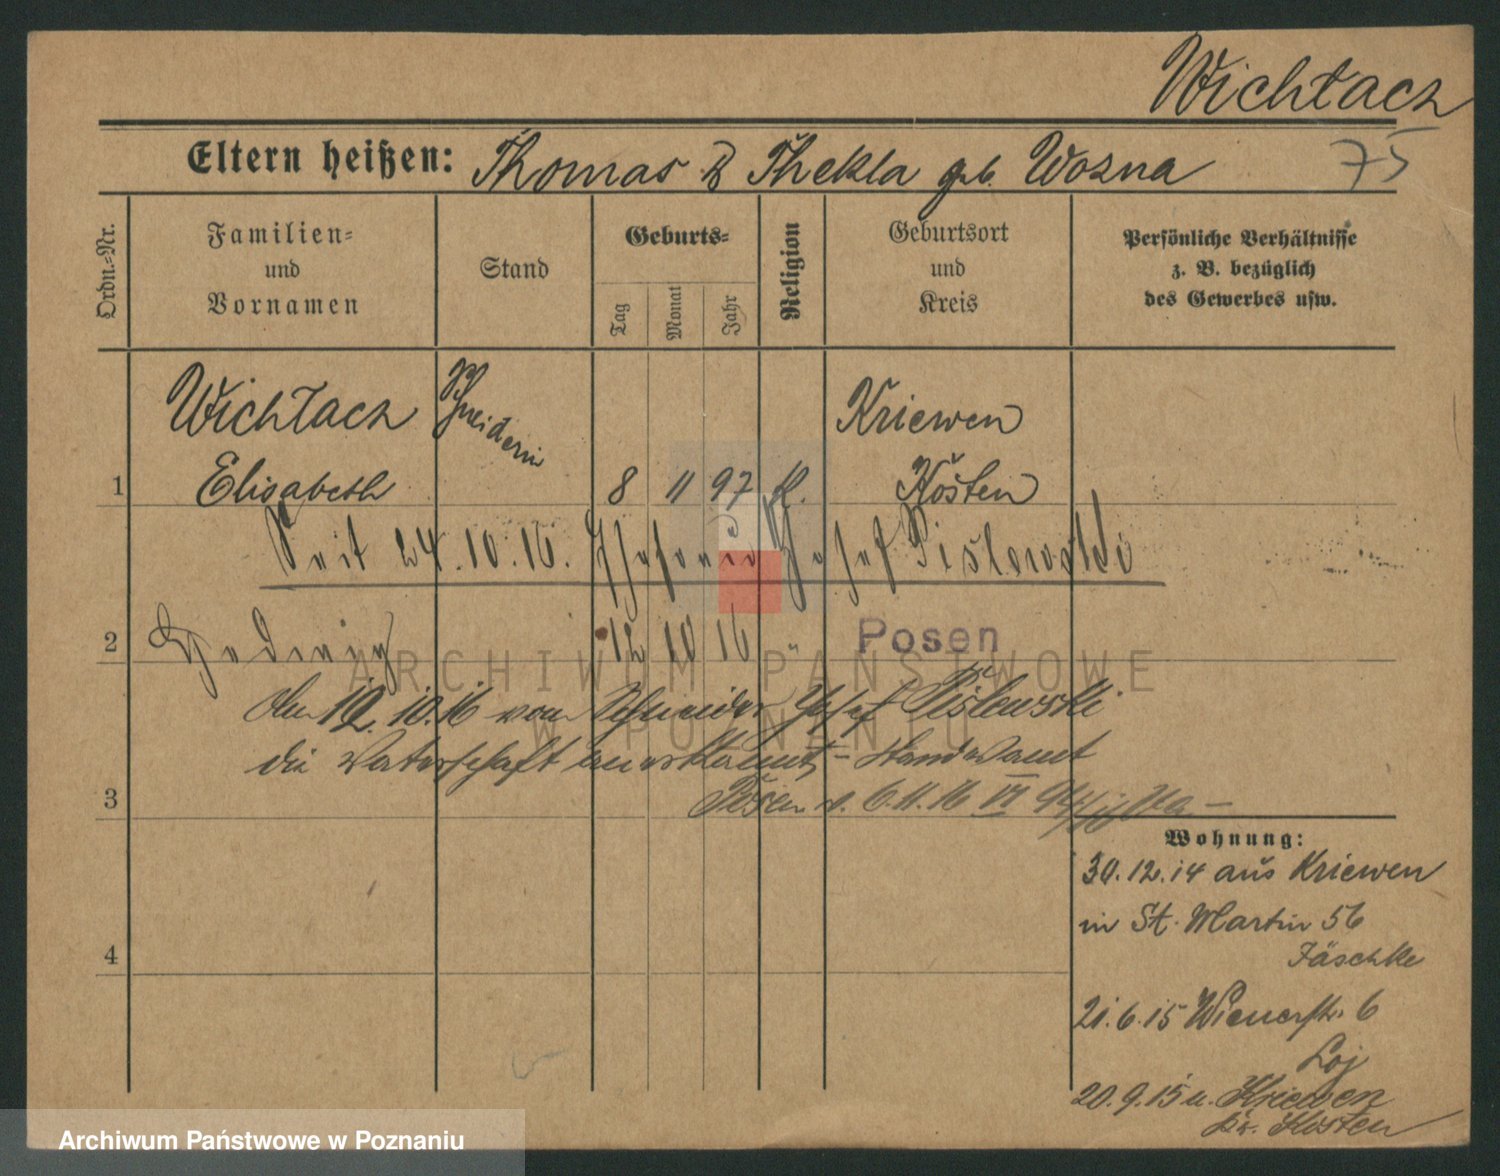 Wichtacz
Eltern heißen: Thomas & Thekla geb. Wozna 75
Ordn.-Nr.
Familien-
und
Vornamen
Stand
Geburts-
Tag
Monat
Jahr
Religion
Geburtsort
und
Kreis
Persönliche Verhältnisse
z. B. bezüglich
des Gewerbes usw.
Wichtacz Schneiderin Kriewen
1 Elisabeth 8 11 97 k. Kosten
Seit 24.10.16. Ehefrau Josef Pislewski
2 Hedwig 12 10 16 " Posen
den 12.10.16 vom Schneider Josef Pislewski
die Vaterschaft anerkannt - Standesamt
3 Posen v. 6.11.16 VI
Wohnung:
30.12.14 aus Kriewen
in St. Martin 56
Jäschke
4
21.6.15 Wienerstr. 6
Loj
20.9.15 n. Kriewen
Kr. Kosten
ARCHIWUM PAŃSTWOWE
W POZNANIU
Archiwum Państwowe w Poznaniu